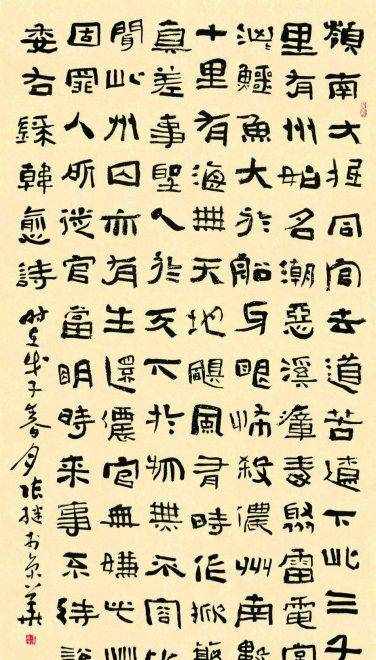 嶺南大抵同官去道苦遼下此三千
里有州始名潮惡溪瘴毒聚雷電常
洶鱷魚大於船牙眼怖殺儂州南數
十里有海無天地颶風有時作掀簸
真差事聖人於天下於物無不容比
聞此州囚亦有生還儂官無嫌此州
固罪人所徙官當明時來事不待說
委右錄韓愈詩
時在戊子春月張繼於京華